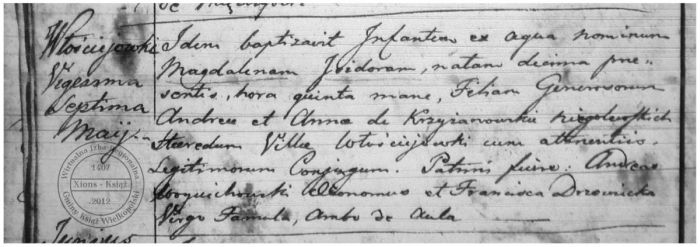 Włościejewki
Vigesima
Septima
Maij
Idem baptizavit Infantem ex aqua nominum
Magdalenam Isidoram, natam decima prae-
sentis, hora quinta mane, Filiam Generosorum
Andreae et Annae de Krzyżanowskie Niegolewskich
Haeredum Villae Włościejewki cum attinentiis.
Legitimorum Conjugum. Patrini fuere: Andreas
Oeconomus et Francisca Drzewiecka
Virgo Famula, Ambo de Aula
Junius
Wirtualna Izba Regionalna
1407
Xions - Książ
2012
Gminy Książ Wielkopolski